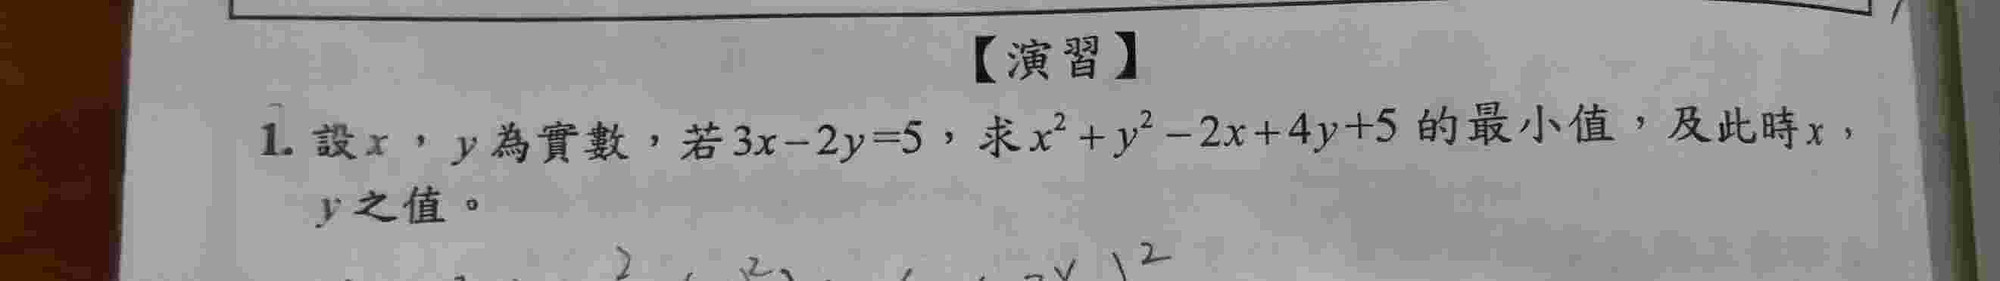 【演習】
1. 設x，y為實數，若3x-2y=5，求x²+y²-2x+4y+5的最小值，及此時x，
y之值。